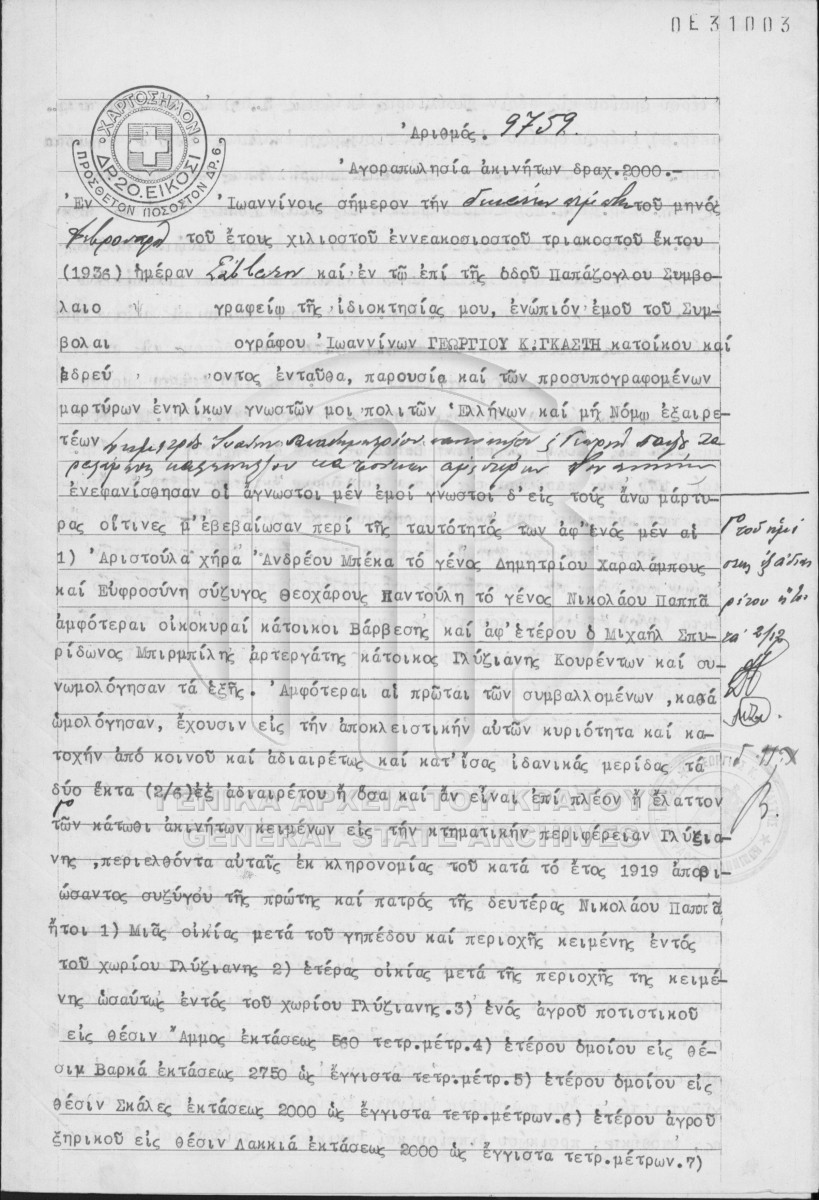 ΟΕ31003
ΧΑΡΤΟΣΗΜΟΝ
ΔΡ20.ΕΙΚΟΣΙ
ΠΡΟΣΘΕΤΟΝ ΠΟΣΟΣΤΟΝ ΔΡ.6
Ἀριθμός. 9759.
Ἀγοραπωλησία ἀκινήτων δραχ.2000.-
Ἐν Ἰωαννίνοις σήμερον τήν τοῦ μηνός
Φεβρουαρίου τοῦ ἔτους χιλιοστοῦ ἐννεακοσιοστοῦ τριακοστοῦ ἕκτου
(1936) ἡμέραν Σάββατον καί ἐν τῷ ἐπί τῆς ὁδοῦ Παπάζογλου Συμβο-
λαιο γραφείῳ τῆς ἰδιοκτησίας μου, ἐνώπιόν ἐμοῦ τοῦ Συμ-
βολαι ογράφου Ἰωαννίνων ΓΕΩΡΓΙΟΥ Κ.ΓΚΑΣΤΗ κατοίκου καί
ἑδρεύ οντος ἐνταῦθα, παρουσίᾳ καί τῶν προσυπογραφομένων
μαρτύρων ἐνηλίκων γνωστῶν μοι πολιτῶν Ἑλλήνων καί μή Νόμῳ ἐξαιρε-
τέων
ἐνεφανίσθησαν οἱ ἄγνωστοι μέν ἐμοί γνωστοί δ'εἰς τούς ἄνω μάρτυ-
ρας οἵτινες μ'ἐβεβαίωσαν περί τῆς ταυτότητός των ἀφ'ἑνός μέν αἱ
1) Ἀριστούλα χήρα Ἀνδρέου Μπέκα τό γένος Δημητρίου Χαραλάμπους
καί Εὐφροσύνη σύζυγος Θεοχάρους Παντούλη τό γένος Νικολάου Παππᾶ
ἀμφότεραι οἰκοκυραί κάτοικοι Βάρβεσης καί ἀφ'ἑτέρου ὁ Μιχαήλ Σπυ-
ρίδωνος Μπιρμπίλης ἀρτεργάτης κάτοικος Γλύζιανης Κουρέντων καί συ-
νωμολόγησαν τά ἑξῆς. Ἀμφότεραι αἱ πρῶται τῶν συμβαλλομένων ,καθά
ὡμολόγησαν, ἔχουσιν εἰς τήν ἀποκλειστικήν αὐτῶν κυριότητα καί κα-
τοχήν ἀπό κοινοῦ καί ἀδιαιρέτως καί κατ'ἴσας ἰδανικάς μερίδας τά
δύο ἕκτα (2/6)ἐξ ἀδιαιρέτου ἤ ὅσα καί ἄν εἶναι ἐπί πλέον ἤ ἔλαττον
τῶν κάτωθι ἀκινήτων κειμένων εἰς τήν κτηματικήν περιφέρειαν Γλύζια-
νης ,περιελθόντα αὐταῖς ἐκ κληρονομίας τοῦ κατά τό ἔτος 1919 ἀποβι-
ώσαντος συζύγου τῆς πρώτης καί πατρός τῆς δευτέρας Νικολάου Παππᾶ
ἤτοι 1) Μιᾶς οἰκίας μετά τοῦ γηπέδου καί περιοχῆς κειμένης ἐντός
τοῦ χωρίου Γλύζιανης 2) ἑτέρας οἰκίας μετά τῆς περιοχῆς της κειμέ-
νης ὡσαύτως ἐντός τοῦ χωρίου Γλύζιανης.3) ἑνός ἀγροῦ ποτιστικοῦ
εἰς θέσιν Ἄμμος ἐκτάσεως 560 τετρ.μέτρ.4) ἑτέρου ὁμοίου εἰς θέ-
σιν Βαρκά ἐκτάσεως 2750 ὡς ἔγγιστα τετρ.μέτρ.5) ἑτέρου ὁμοίου εἰς
θέσιν Σκάλες ἐκτάσεως 2000 ὡς ἔγγιστα τετρ.μέτρων.6) ἑτέρου ἀγροῦ
ξηρικοῦ εἰς θέσιν Λακκιά ἐκτάσεως 2000 ὡς ἔγγιστα τετρ.μέτρων.7)
ΓΕΝΙΚΑ ΑΡΧΕΙΑ ΤΟΥ ΚΡΑΤΟΥΣ
GENERAL STATE ARCHIVES